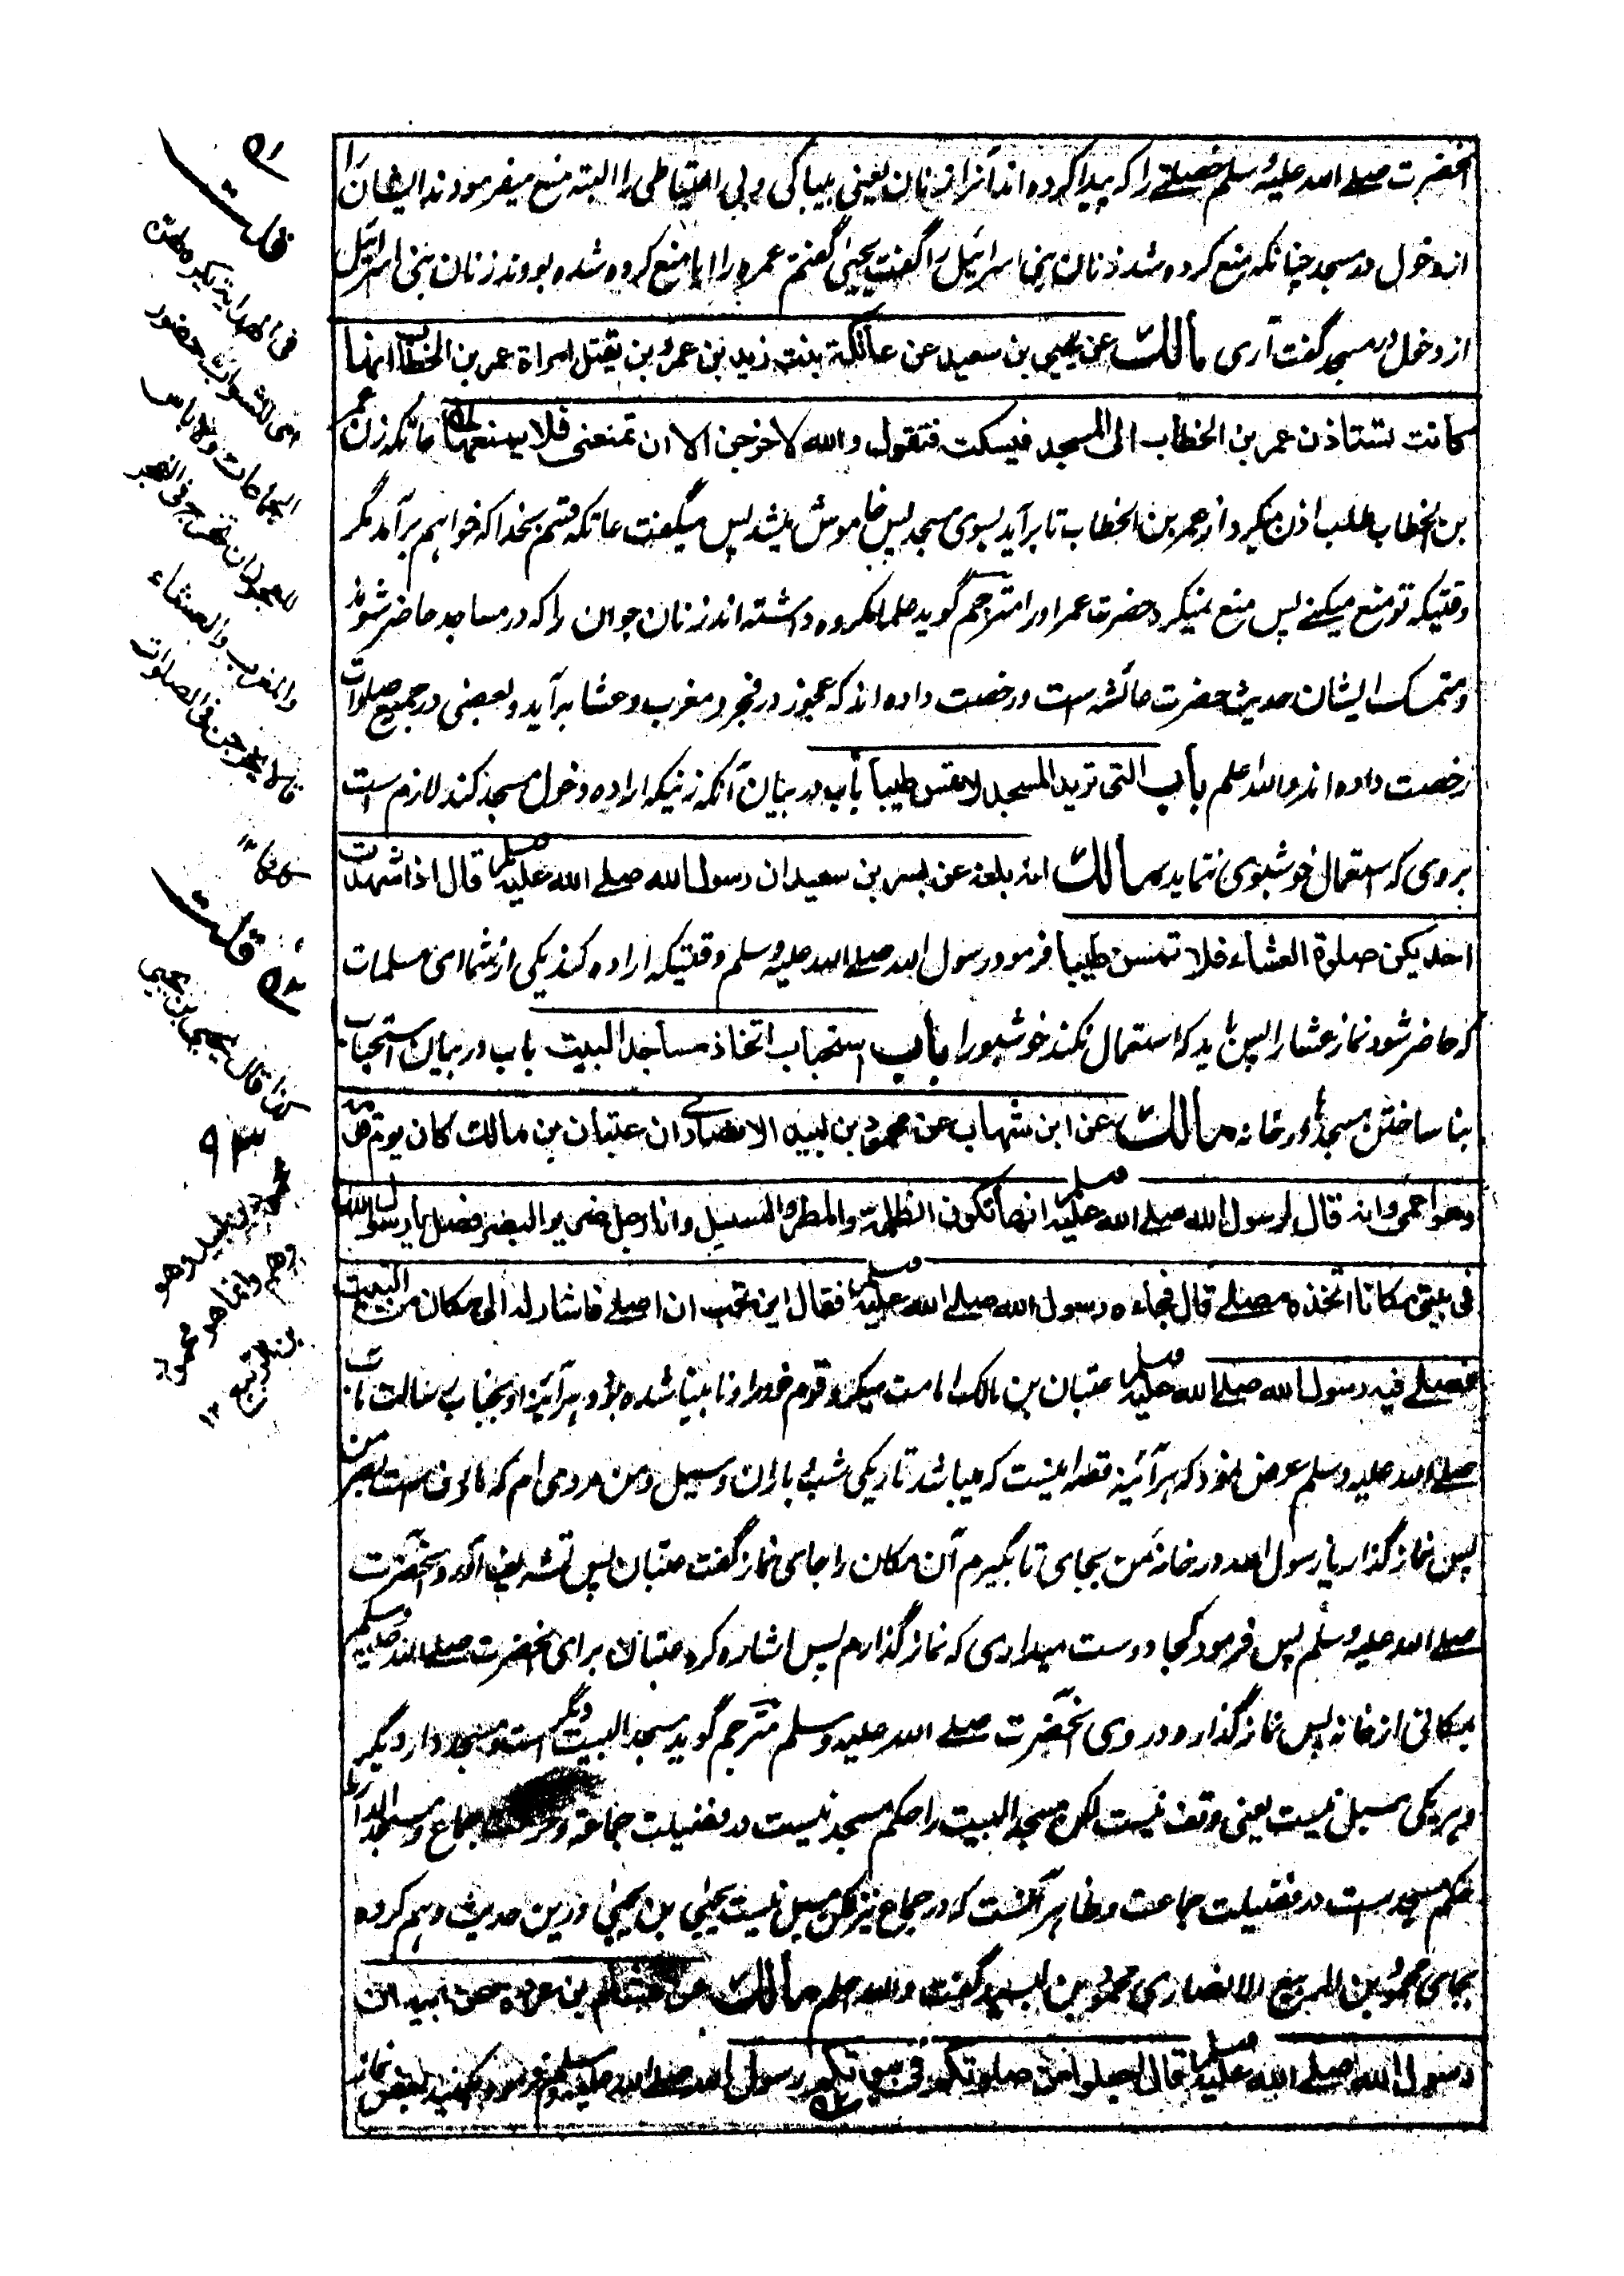 آنحضرت صلے الله علیه وسلم خصلتے را که پیدا کرده اند آنرا زنان یعنی بیباکی و بی احتیاطی را البته منع میفرمودند ایشان را
از دخول در مسجد چنانکه منع کرده شد زنان بنی اسرائیل را گفت یحیی گفتم عمره را ایا منع کرده شده بودند زنان بنی اسرائیل
از دخول در مسجد گفت آری مالك عن يحيى بن سعيد عن عاتكة بنت زيد بن عمرو بن نفيل امراة عمر بن الخطاب انها
كانت تستاذن عمر بن الخطاب الى المسجد فيسكت فتقول والله لاخرجن الا ان تمنعنى فلا يمنعها عاتکه زن عمر
بن الخطاب طلب اذن میکرد از عمر بن الخطاب تا برآید بسوی مسجد پس خاموش میشد پس میگفت عاتکه قسم بخدا که خواهم برآمد مگر
وقتیکه تو منع میکنے پس منع نمیکرد حضرت عمر او را مترجم گوید علما مکروه داشته اند زنان جوان را که در مساجد حاضر شوند
و متمسک ایشان حدیث حضرت عائشه ست و رخصت داده اند که عجوز در فجر و مغرب و عشا برآید و بعضی در جمیع صلوات
رخصت داده اند والله اعلم باب التى تريد المسجد لا تمس طيبا باب در بیان آنکه زنیکه اراده دخول مسجد کند لازم است
بروی که استعمال خوشبوی ننماید مالك انه بلغه عن بسر بن سعيد ان رسول الله صلے الله عليه وسلم قال اذا شهدت
احديكن صلوة العشاء فلا تمسن طيبا فرمود رسول الله صلے الله علیه وسلم وقتیکه اراده کند یکی از شما ای مسلمات
که حاضر شود نماز عشا را پس باید که استعمال نکند خوشبو را باب استحباب اتخاذ مساجد البيت باب در بیان استحباب
بنا ساختن مسجد در خانه مالك عن ابن شهاب عن محمود بن لبيد الانصارى ان عتبان بن مالك كان يوم قومه
وهو اعمى وانه قال لرسول الله صلے الله عليه وسلم انها تكون الظلمة والمطر والسيل وانا رجل ضرير البصر فصل يا رسول الله
فى بيتى مكانا اتخذه مصلے قال فجاءه رسول الله صلے الله عليه وسلم فقال اين تحب ان اصلے فاشار له الى مكان من البيت
فصلے فيه رسول الله صلے الله عليه وسلم عتبان بن مالک امامت میکرد قوم خود را و نابینا شده بود و هر آئینه او بجناب رسالت مآب
صلے الله علیه وسلم عرض نمود که هر آئینه قصه اینست که میباشد تاریکی شب و باران و سیل و من مردی ام که ماؤف ست بصر من
پس نماز گذار یا رسول الله در خانه من بجای تا بگیرم آن مکان را جای نماز گفت عتبان پس تشریف آورد آنحضرت
صلے الله علیه وسلم پس فرمود کجا دوست میداری که نماز گذارم پس اشاره کرد عتبان برای آنحضرت صلے الله علیه وسلم
بمکانی از خانه پس نماز گذارد در وی آنحضرت صلے الله علیه وسلم مترجم گوید مسجد البیت دیگر است و مسجد دار دیگر
و هر یکی مسبل نیست یعنی وقف نیست لکن مسجد البیت را حکم مسجد نیست در فضیلت جماعة و حرمت جماع و مسجد الدار را
حکم مسجد ست در فضیلت جماعت و ظاهر آنست که در جماع نیز لکن مسبل نیست یحیی بن یحیی درین حدیث وهم کرده
بجای محمود بن الربیع الانصاری محمود بن لبید گفت والله اعلم مالك عن هشام بن عروة عن ابيه ان
رسول الله صلے الله عليه وسلم قال اجعلوا من صلوتكم فى بيوتكم رسول الله صلے الله علیه وسلم فرمود بکنید بعض نماز
قلت
فى الهداية يكره لهن
اى للشواب حضور
الجماعات ولا باس
للعجوز ان تخرج فى الفجر
والمغرب والعشاء
قالا يخرجن فى الصلوات
كلها ١٢
قلت
هكذا قال يحيى بن يحيى
محمود بن لبيد وهو
وهم وانما هو محمود
بن الربيع ١٢